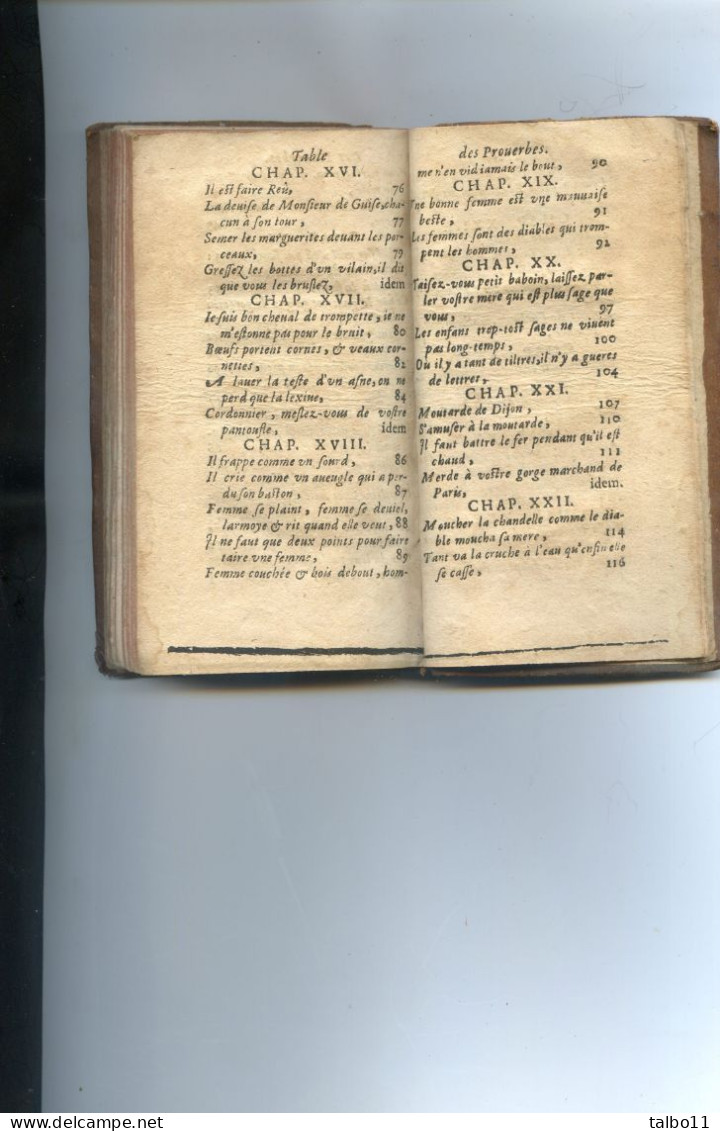 Table
CHAP. XVI.
Il est faire Reü, 76
La deuise de Monsieur de Guise, cha-
cun à son tour, 77
Semer les marguerites deuant les por-
ceaux, 79
Gressez les bottes d'vn vilain, il dit
que vous les bruslez, idem
CHAP. XVII.
Ie suis bon cheual de trompette, ie ne
m'estonne pas pour le bruit, 80
Bœufs portent cornes, & veaux cor-
nettes, 82
A lauer la teste d'vn asne, on ne
perd que la lexiue, 84
Cordonnier, meslez-vous de vostre
pantoufle, idem
CHAP. XVIII.
Il frappe comme vn sourd, 86
Il crie comme vn aueugle qui a per-
du son baston, 87
Femme se plaint, femme se deuiel,
larmoye & rit quand elle veut, 88
Il ne faut que deux points pour faire
taire vne femme, 89
Femme couchée & bois debout, hom-
des Prouerbes.
me n'en vid iamais le bout, 90
CHAP. XIX.
Vne bonne femme est vne mauuaise
beste, 91
Les femmes sont des diables qui trom-
pent les hommes, 92
CHAP. XX.
Taisez-vous petit baboin, laissez par-
ler vostre mere qui est plus sage que
vous, 97
Les enfans trop-tost sages ne viuent
pas long-temps, 100
Où il y a tant de tiltres, il n'y a gueres
de lettres, 104
CHAP. XXI.
Moutarde de Dijon, 107
S'amuser à la moutarde, 110
Il faut battre le fer pendant qu'il est
chaud, 111
Merde à vostre gorge marchand de
Paris, idem.
CHAP. XXII.
Moucher la chandelle comme le dia-
ble moucha sa mere, 114
Tant va la cruche à l'eau qu'enfin elle
se casse, 116
Delcampe.net
talbo11